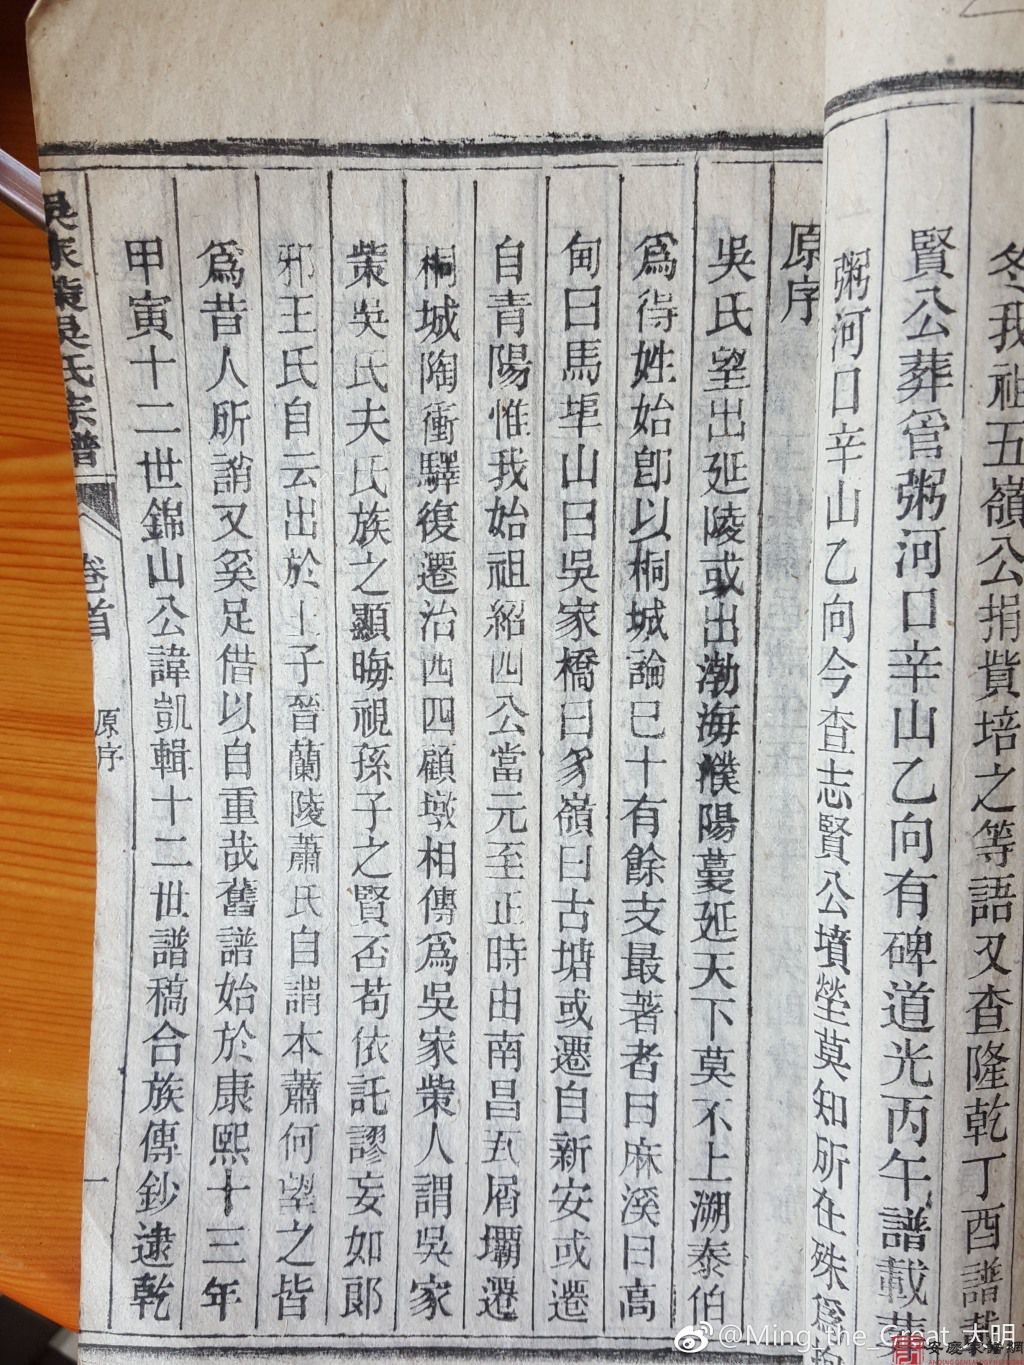 冬我祖五嶺公捐貲培之等語又查隆乾丁酉譜載
賢公葬管粥河口辛山乙向有碑道光丙午譜載葬
粥河口辛山乙向今查志賢公墳塋莫知所在殊爲
原序
吳氏望出延陵或出渤海濮陽蔓延天下莫不上溯泰伯
爲得姓始卽以桐城論已十有餘支最著者曰麻溪曰高
甸曰馬埠山曰吳家橋曰豸嶺曰古塘或遷自新安或遷
自青陽惟我始祖紹四公當元至正時由南昌瓦屑壩遷
桐城陶衝驛復遷治西四顧墩相傳爲吳家柴人謂吳家
柴吳氏夫氏族之顯晦視孫子之賢否苟依託謬妄如郎
邪王氏自云出於王子晉蘭陵蕭氏自謂本蕭何望之皆
爲昔人所誚又奚足借以自重哉舊譜始於康熙十三年
甲寅十二世錦山公諱凱輯十二世譜稿合族傳鈔逮乾
吳家柴吳氏宗譜
卷首
原序
一
@Ming_the_Great_大明
安慶家譜網